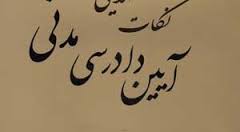 نکات
آیین دادرسی مدنی